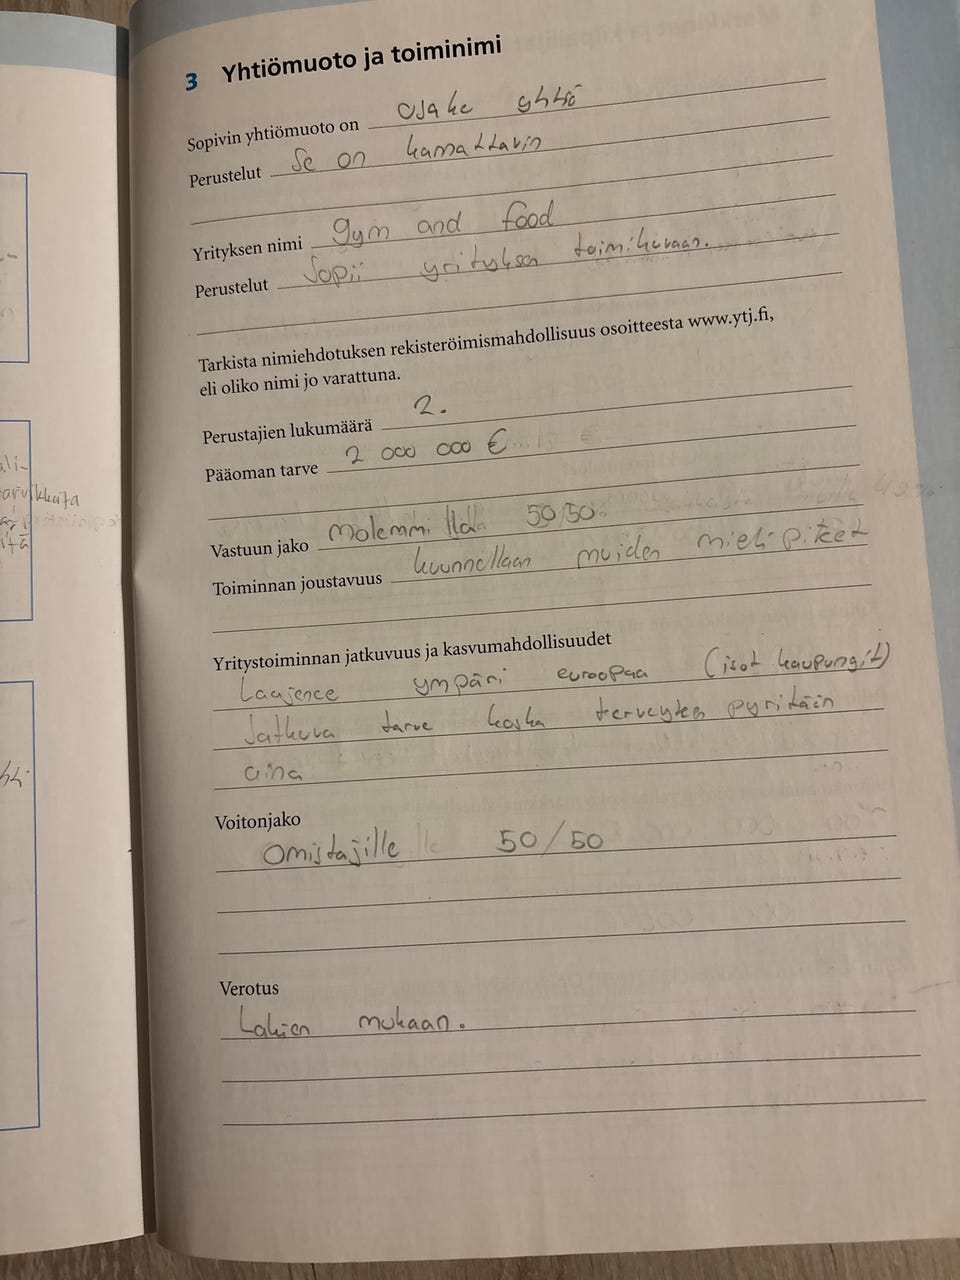 3 Yhtiömuoto ja toiminimi
Sopivin yhtiömuoto on osake yhtiö
Perustelut Se on kannattavin
Yrityksen nimi Gym and food
Perustelut Sopii yrityksen toimikuvaan.
Tarkista nimiehdotuksen rekisteröimismahdollisuus osoitteesta www.ytj.fi,
eli oliko nimi jo varattuna.
Perustajien lukumäärä 2.
Pääoman tarve 2 000 000 €
Vastuun jako Molemmilla 50/50
Toiminnan joustavuus kuunnellaan muiden mieli-piteet
Yritystoiminnan jatkuvuus ja kasvumahdollisuudet
Laajence ympäri euroopaa (isot kaupungit)
Jatkuva tarve koska terveyten pyritään
aina
Voitonjako
Omistajille 50/50
Verotus
Lakien mukaan.